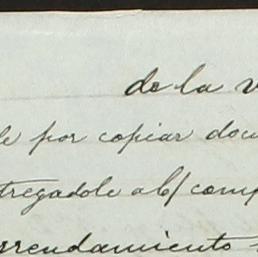 de la v
le por copiar docu
tregadole al C/ comp
rrendamiento